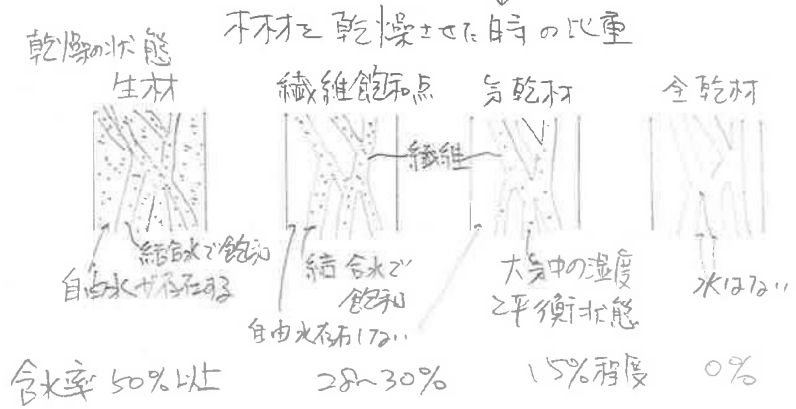 木材を乾燥させた時の比重
乾燥の状態
生材 繊維飽和点 気乾材 全乾材
繊維
結合水で飽和
自由水が存在する
結合水で
飽和
自由水存在しない
大気中の湿度
と平衡状態
水はない
含水率 50%以上 28~30% 15%程度 0%